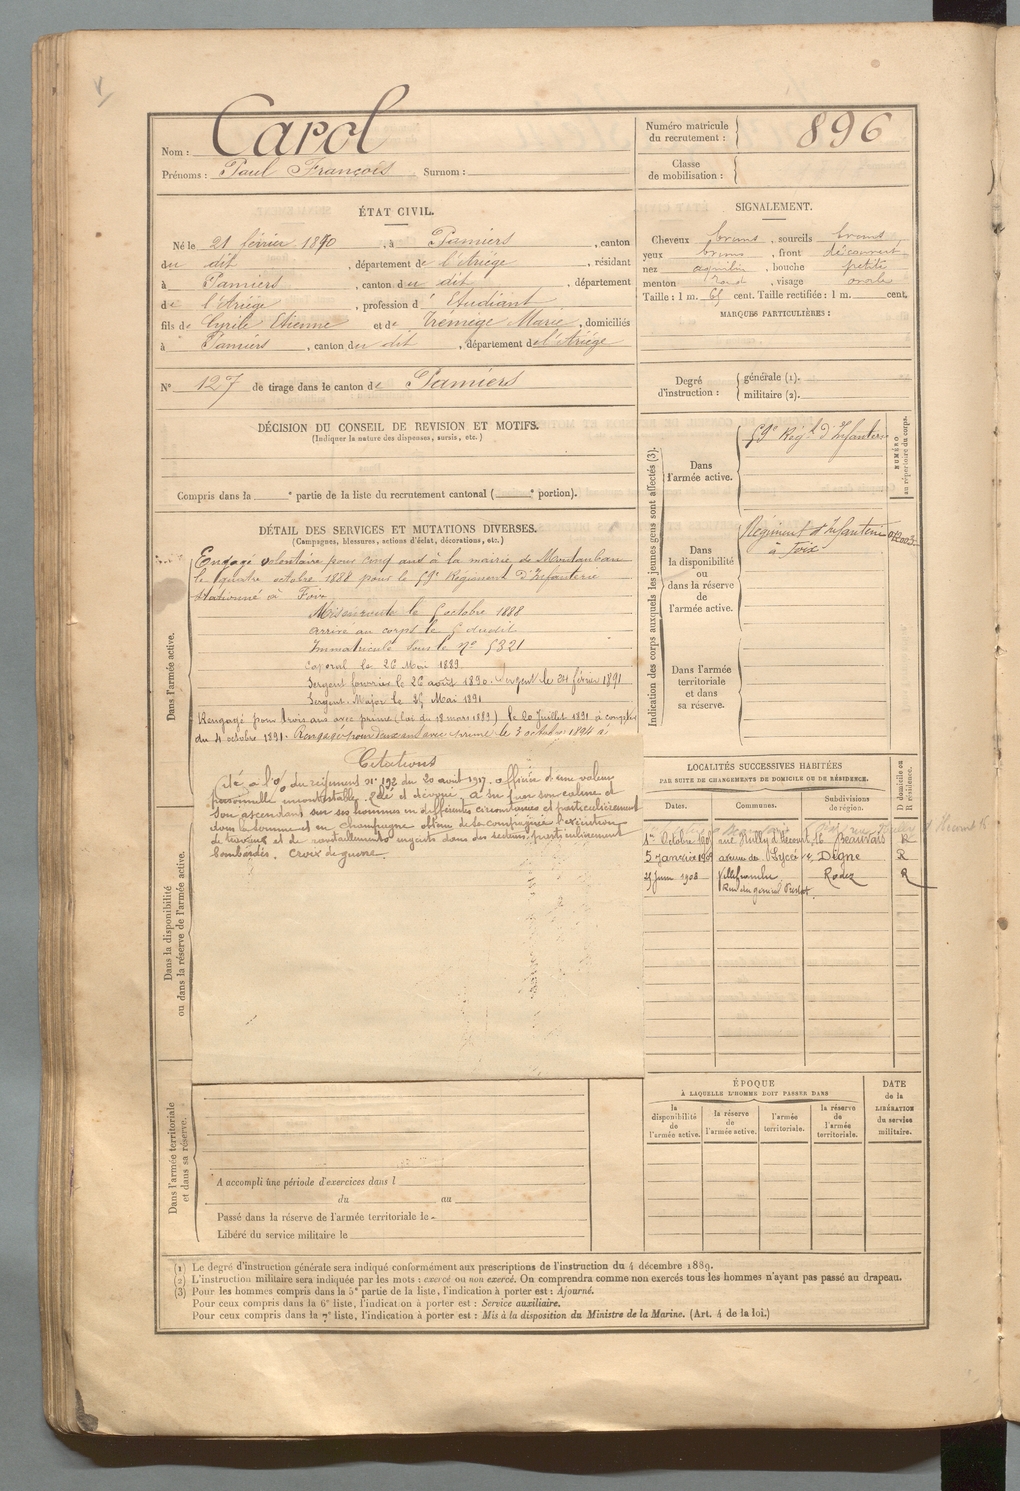 Nom : Carol
Prénoms : Paul François Surnom :
Numéro matricule
du recrutement : 896
Classe
de mobilisation :
ÉTAT CIVIL.
Né le 21 février 1870, à Pamiers, canton
du dit, département de l'Ariége, résidant
à Pamiers, canton du dit, département
de l'Ariége, profession d'Etudiant
fils de Cyrile Etienne et de Trémège Marie, domiciliés
à Pamiers, canton du dit, département de l'Ariége
SIGNALEMENT.
Cheveux bruns, sourcils bruns
yeux bruns, front découvert
nez aquilin, bouche petite
menton rond, visage ovale
Taille : 1 m. 65 cent. Taille rectifiée : 1 m. cent.
MARQUES PARTICULIÈRES :
N° 127 de tirage dans le canton de Pamiers
Degré
d'instruction :
générale (1).
militaire (2).
DÉCISION DU CONSEIL DE REVISION ET MOTIFS.
(Indiquer la nature des dispenses, sursis, etc.)
Compris dans la e partie de la liste du recrutement cantonal ( e portion).
DÉTAIL DES SERVICES ET MUTATIONS DIVERSES.
(Campagnes, blessures, actions d'éclat, décorations, etc.)
Dans l'armée active.
Engagé volontaire pour cinq ans à la mairie de Montauban
le quatre octobre 1888 pour le 59e Régiment d'Infanterie
stationné à Foix
Mis en route le 5 octobre 1888
arrivé au corps le 5 dudit
Immatriculé sous le n° 5321
Caporal le 26 Mai 1889.
Sergent fourrier le 26 août 1890. Sergent le 24 février 1891
Sergent-Major le 15 Mai 1891
Rengagé pour trois ans avec prime (Loi du 18 mars 1889) le 20 Juillet 1891 à compter
du 4 octobre 1891. Rengagé pour deux ans avec prime le 3 octobre 1894 à
Citations
Cité à l'O. du régiment n° 192 du 20 août 1917. officier d'une valeur
personnelle incontestable. Zélé et dévoué. A su par son calme et
son ascendant sur ses hommes en différentes circonstances et particulièrement
dans la Somme et en Champagne obtenir de la compagnie l'exécution
de travaux et de ravitaillements urgents dans des secteurs particulièrement
bombardés. Croix de guerre
Dans la disponibilité
ou dans la réserve de l'armée active.
Dans l'armée territoriale
et dans sa réserve.
A accompli une période d'exercices dans l
du au
Passé dans la réserve de l'armée territoriale le
Libéré du service militaire le
Indication des corps auxquels les jeunes gens sont affectés (3).
NUMÉRO
au répertoire du corps.
Dans
l'armée active.
59e Régt d'Infanterie
Dans
la disponibilité
ou
dans la réserve
de
l'armée active.
Régiment d'Infanterie
à Foix
Dans l'armée
territoriale
et dans
sa réserve.
LOCALITÉS SUCCESSIVES HABITÉES
PAR SUITE DE CHANGEMENTS DE DOMICILE OU DE RÉSIDENCE.
Dates.
Communes.
Subdivisions
de région.
D domicile ou
R résidence.
1er Octobre rue Nully d'Hécourt, 16 Beauvais R
5 janvier avenue du Lycée Digne R
25 Juin 1908 Villefranche Rodez R
Rue du général Prestat
ÉPOQUE
À LAQUELLE L'HOMME DOIT PASSER DANS
la
disponibilité
de
l'armée active.
la réserve
de
l'armée active.
l'armée
territoriale.
la réserve
de
l'armée
territoriale.
DATE
de la
LIBÉRATION
du service
militaire.
(1) Le degré d'instruction générale sera indiqué conformément aux prescriptions de l'instruction du 4 décembre 1889.
(2) L'instruction militaire sera indiquée par les mots : exercé ou non exercé. On comprendra comme non exercés tous les hommes n'ayant pas passé au drapeau.
(3) Pour les hommes compris dans la 5e partie de la liste, l'indication à porter est : Ajourné.
Pour ceux compris dans la 6e liste, l'indication à porter est : Service auxiliaire.
Pour ceux compris dans la 7e liste, l'indication à porter est : Mis à la disposition du Ministre de la Marine. (Art. 4 de la loi.)